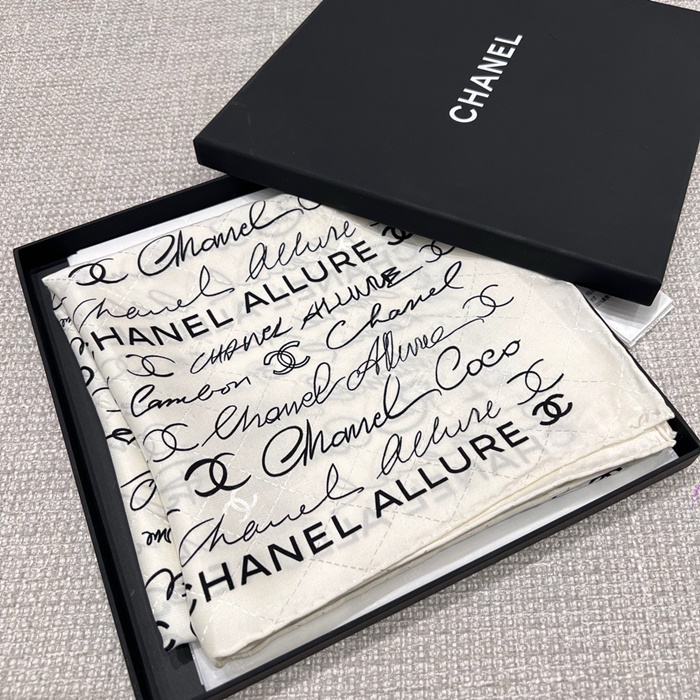 CHANEL
Chanel
Chanel Allure
CHANEL ALLURE
CHANEL ALLURE
Cambon Chanel
Chanel Allure
Chanel Coco
Chanel Allure
CHANEL ALLURE